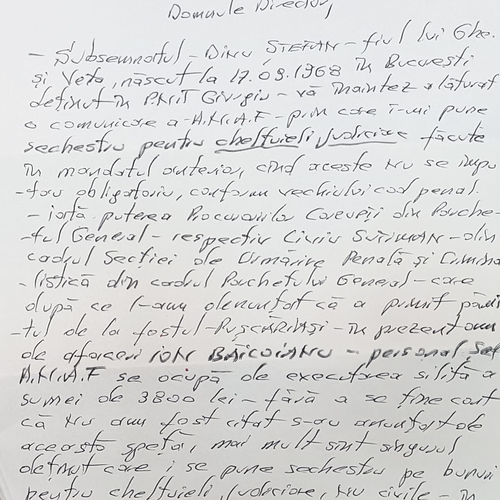 Domnule Director,
- Subsemnatul - Dinu ȘTEFAN - fiul lui Ghe.
și Veta, născut la 17.09.1968 în București
deținut în PNT Giurgiu - vă înaintez alăturat
o comunicare a A.N.A.F - prin care i-mi pune
sechestru pentru cheltuieli judiciare făcute
în mandatul anterior, cînd aceste nu se impu
-tau obligatoriu, conform vechiului cod penal.
- iată puterea Procurorilor Corupți din Parche-
-tul General - respectiv Liviu - din
cadrul Secției de Urmărire Penală și Crimina
-listică din cadrul Parchetului General - care
după ce l-am denunțat că a primit păm
-tul de la fostul - PUȘCĂRIAȘ - în prezent om
de afaceri - personal Șef
A.N.A.F se ocupă de executarea silită a
sumei de 3800 lei - fără a se ține cont
că nu am fost citat s-au anunțat de
această speță, mai mult sînt singurul
deținut care i se pune sechestru pe bunuri
pentru cheltuieli judiciare, nu civile - în